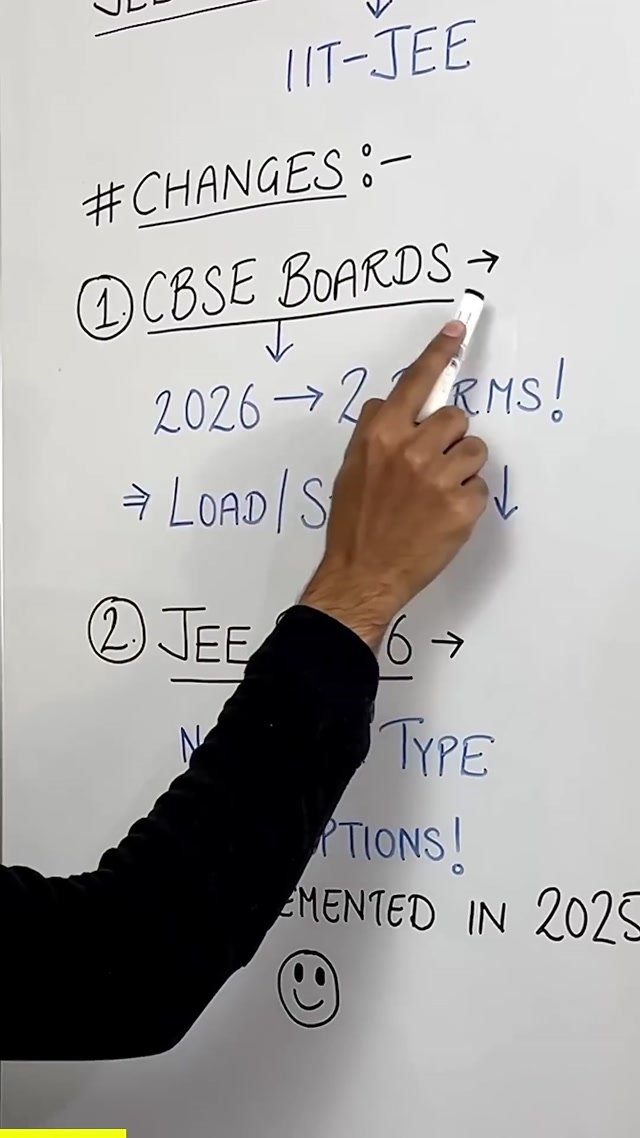 IIT-JEE
# CHANGES :-
① CBSE BOARDS →
↓
2026 → 2 RMS!
⇒ LOAD/S ↓
② JEE 6 →
TYPE
PTIONS!
EMENTED IN 2025